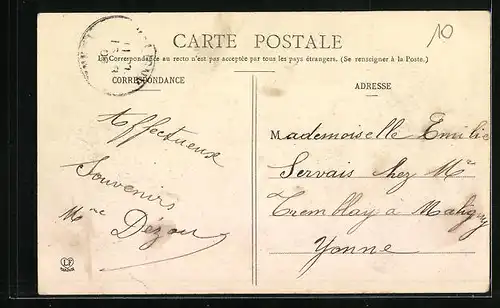 10
CARTE POSTALE
La Correspondance au recto n'est pas acceptée par tous les pays étrangers. (Se renseigner à la Poste.)
CORRESPONDANCE
ADRESSE
Affectueux
Souvenirs
Mme Dézou
Mademoiselle Emilie
Servais chez Mr
Tremblay à Maligny
Yonne